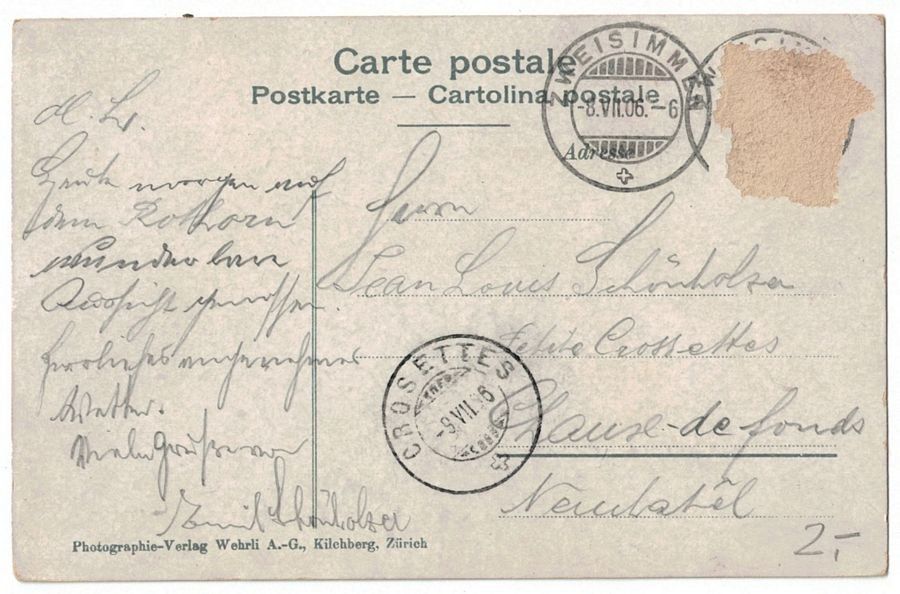 Carte postale
Postkarte — Cartolina postale
ZWEISIMMEN
-8.VII.06.-6
Adresse
M. L.
Heute morgen auf
dem Rothorn
wunderbare
Aussicht genossen.
Herrliches angenehmes
Wetter.
Viele Grüsse von
Emil Schönholzer
Herrn
Jean Louis Schönholzer
Petite Crossettes
Chaux-de-fonds
Neuchatêl
CROSETTES
-9.VII.06
Photographie-Verlag Wehrli A.-G., Kilchberg, Zürich
2.-